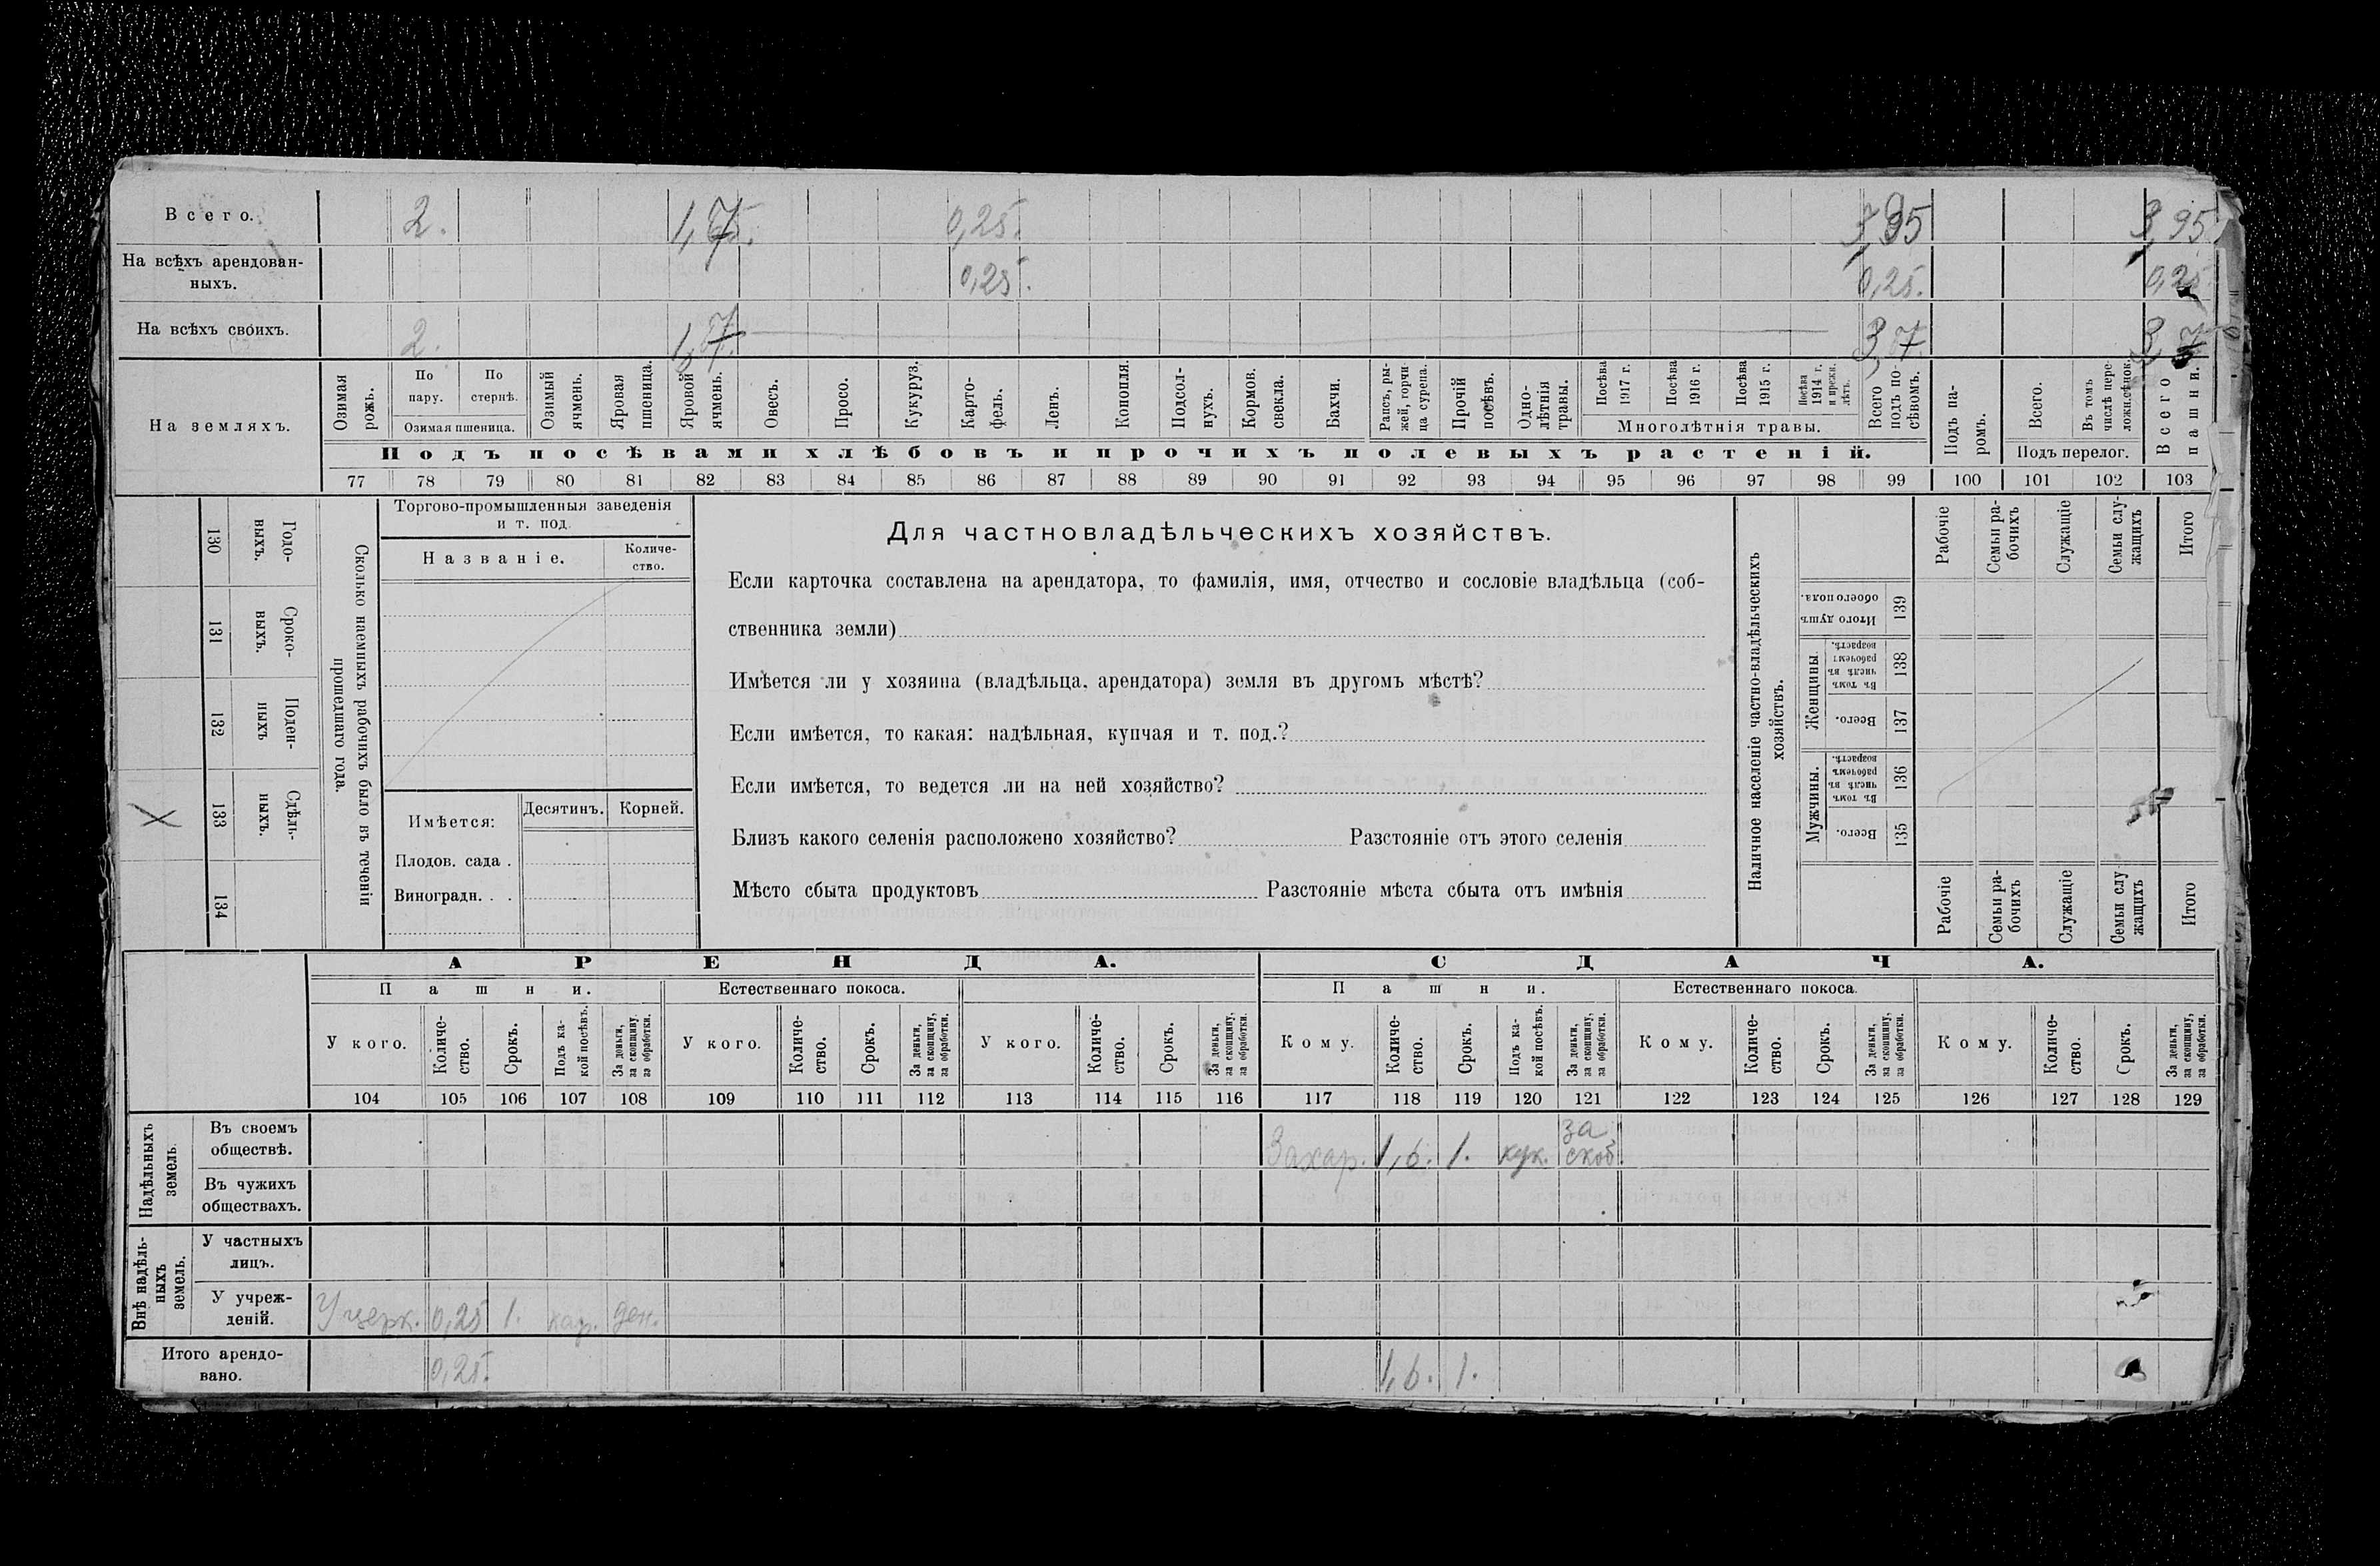 Всего. 2. 1,75. 0,25. 3,95 3,95
На всѣхъ арендован-
ныхъ. 0,25. 0,25. 0,25
На всѣхъ своихъ. 2. 1,7 3,7 3,7
На земляхъ.
Озимая рожь.
По пару.
По стернѣ.
Озимая пшеница.
Озимый ячмень.
Яровая пшеница.
Яровой ячмень.
Овесъ.
Просо.
Кукуруз.
Карто-
фель.
Ленъ.
Конопля.
Подсол-
нухъ.
Кормов.
свекла.
Бахчи.
Рапсъ, ры-
жей, горчи
ца сурепа.
Прочій
посѣвъ.
Одно-
лѣтнія
травы.
Посѣва
1917 г.
Посѣва
1916 г.
Посѣва
1915 г.
Посѣва
1914 г.
и прежн.
лѣтъ.
Многолѣтнія травы.
Всего
подъ по-
сѣвомъ.
Подъ па-
ромъ.
Всего.
Въ томъ
числѣ пере-
ложн.сѣнок.
Подъ перелог.
Всего
пашни.
Подъ посѣвами хлѣбовъ и прочихъ полевыхъ растеній.
77 78 79 80 81 82 83 84 85 86 87 88 89 90 91 92 93 94 95 96 97 98 99 100 101 102 103
130 Годо-
ныхъ.
131 Сроко-
ныхъ.
132 Поден-
ныхъ
X 133 Сдѣль-
ныхъ.
134
Сколько наемныхъ рабочихъ было въ теченіи
прошедшаго года.
Торгово-промышленныя заведенія
и т. под.
Названіе.
Количе-
ство.
Имѣется:
Десятинъ. Корней.
Плодов. сада .
Виноградн. . .
Для частновладѣльческихъ хозяйствъ.
Если карточка составлена на арендатора, то фамилія, имя, отчество и сословіе владѣльца (соб-
ственника земли)
Имѣется ли у хозяина (владѣльца, арендатора) земля въ другомъ мѣстѣ?
Если имѣется, то какая: надѣльная, купчая и т. под.?
Если имѣется, то ведется ли на ней хозяйство?
Близъ какого селенія расположено хозяйство? Разстояніе отъ этого селенія
Мѣсто сбыта продуктовъ Разстояніе мѣста сбыта отъ имѣнія
Наличное населеніе частно-владѣльческихъ
хозяйствъ.
Рабочіе
Семьи ра-
бочихъ
Служащіе
Семьи слу-
жащихъ
Итого
Итого душъ
обоего пола.
139
Женщины.
Въ томъ
числѣ въ
рабочемъ
возрастѣ.
138
Всего.
137
Мужчины.
Въ томъ
числѣ въ
рабочемъ
возрастѣ.
136
Всего.
135
Рабочіе
Семьи ра-
бочихъ
Служащіе
Семьи слу
жащихъ
Итого
АРЕНДА. СДАЧА.
Пашни. Естественнаго покоса. Пашни. Естественнаго покоса.
У кого.
Количе-
ство.
Срокъ.
Подъ ка-
кой посѣвъ.
За деньги,
за скопщину,
за обработки.
У кого.
Количе-
ство.
Срокъ.
За деньги,
за скопщину,
за обработки.
У кого.
Количе-
ство.
Срокъ.
За деньги,
за скопщину,
за обработки.
Кому.
Количе-
ство.
Срокъ.
Подъ ка-
кой посѣвъ.
За деньги,
за скопщину,
за обработки.
Кому.
Количе-
ство.
Срокъ.
За деньги,
за скопщину,
за обработки.
Кому.
Количе-
ство.
Срокъ.
За деньги,
за скопщину,
за обработки.
104 105 106 107 108 109 110 111 112 113 114 115 116 117 118 119 120 121 122 123 124 125 126 127 128 129
Надѣльныхъ
земель.
Въ своемъ
обществѣ. Захар. 1,6. 1. кук. за
скоп.
Въ чужихъ
обществахъ.
Внѣ надѣль-
ныхъ
земель.
У частныхъ
лицъ.
У учреж-
деній. У церк. 0,25 1. кар. ден.
Итого арендо-
вано. 0,25. 1,6. 1.